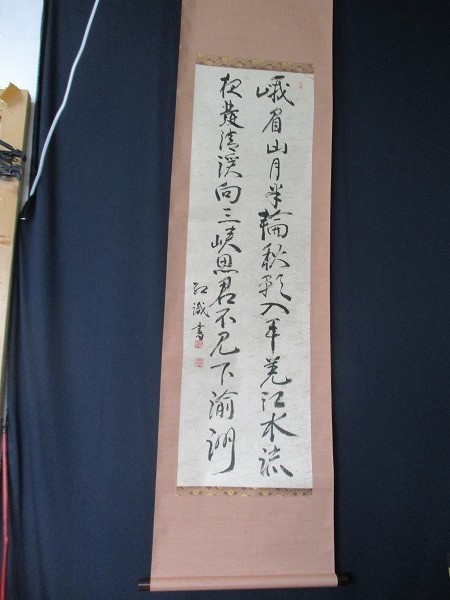 峨眉山月半輪秋影入平羌江水流
夜發清溪向三峽思君不見下渝洲
書